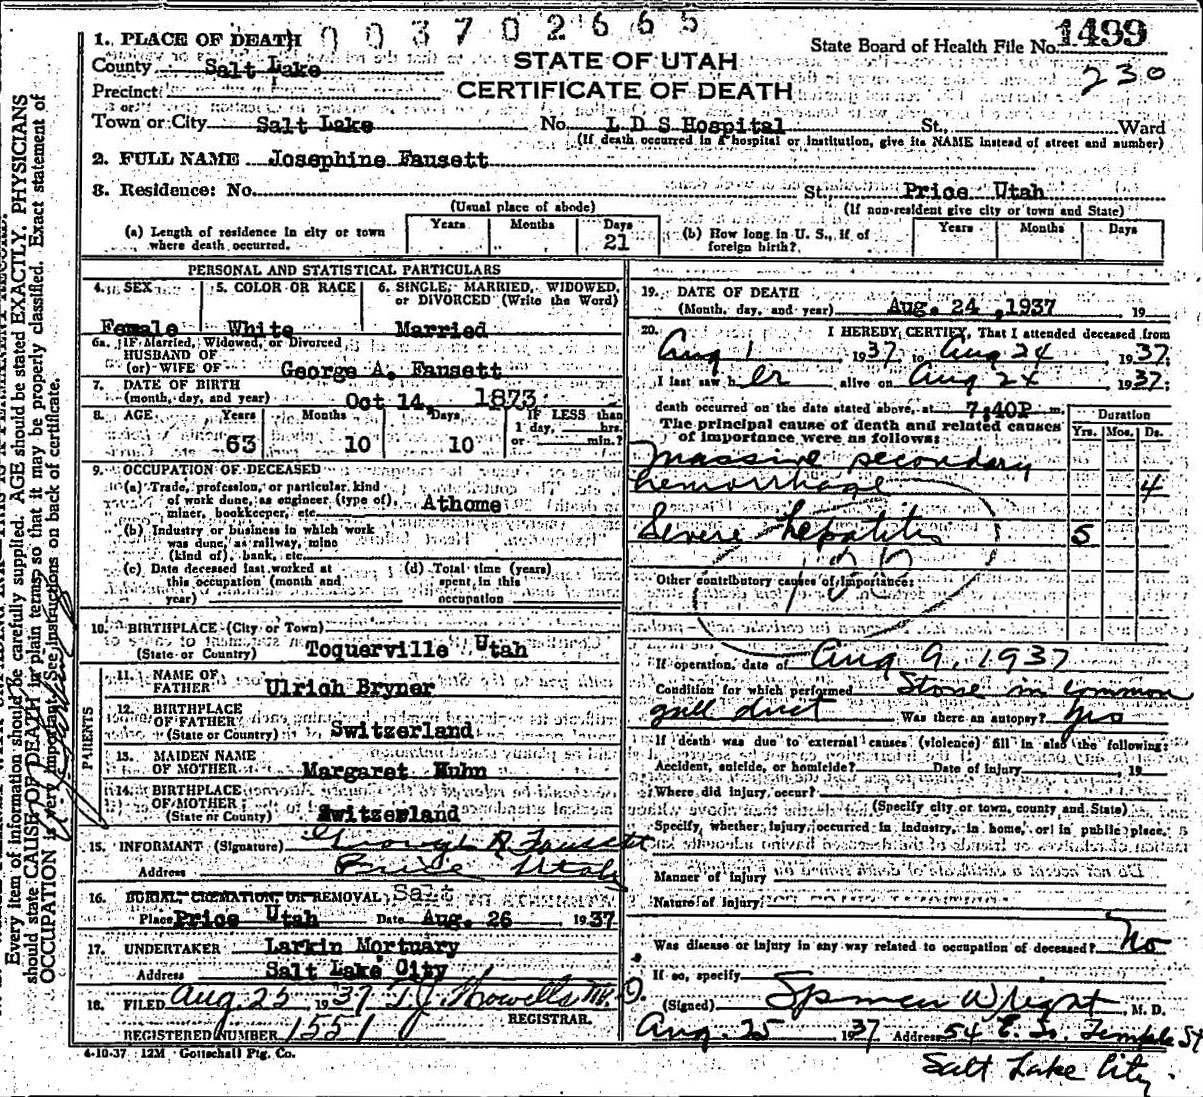 003702665
1. PLACE OF DEATH
State Board of Health File No. 1499
230
County Salt Lake
STATE OF UTAH
Precinct
CERTIFICATE OF DEATH
or
Town or City Salt Lake No. L D S Hospital St. Ward
(If death occurred in a hospital or institution, give its NAME instead of street and number)
2. FULL NAME Josephine Fausett
3. Residence: No. St. Price Utah
(Usual place of abode) (If non-resident give city or town and State)
(a) Length of residence in city or town where death occurred. Years Months Days 21
(b) How long in U. S., if of foreign birth? Years Months Days
PERSONAL AND STATISTICAL PARTICULARS
4. SEX Female
5. COLOR OR RACE White
6. SINGLE, MARRIED, WIDOWED, or DIVORCED (Write the Word) Married
6a. IF Married, Widowed, or Divorced
HUSBAND OF
(or) WIFE OF George A. Fausett
7. DATE OF BIRTH
(month, day, and year) Oct 14, 1873
8. AGE Years 63 Months 10 Days 10 IF LESS than 1 day, hrs. or min.?
9. OCCUPATION OF DECEASED
(a) Trade, profession, or particular kind
of work done, as engineer (type of),
miner, bookkeeper, etc. Athome
(b) Industry or business in which work
was done, as railway, mine
(kind of), bank, etc.
(c) Date deceased last worked at
this occupation (month and
year)
(d) Total time (years)
spent in this
occupation
10. BIRTHPLACE (City or Town)
(State or Country) Toquerville Utah
PARENTS
11. NAME OF
FATHER Ulrich Bryner
12. BIRTHPLACE
OF FATHER
(State or Country) Switzerland
13. MAIDEN NAME
OF MOTHER Margaret Huhn
14. BIRTHPLACE
OF MOTHER
(State or Country) Switzerland
15. INFORMANT (Signature)
Address Price Utah
16. BURIAL, CREMATION, OR REMOVAL Salt
Place Price Utah Date Aug. 26 1937
17. UNDERTAKER Larkin Mortuary
Address Salt Lake City
18. FILED Aug 25 1937 T. J. Howells M.D.
REGISTRAR.
REGISTERED NUMBER 1551
4-10-37 12M Gottschall Ptg. Co.
19. DATE OF DEATH
(Month, day, and year) Aug. 24, 1937 19
20. I HEREBY CERTIFY, That I attended deceased from
Aug 1 1937, to Aug 24, 1937.
I last saw h er alive on Aug 24, 1937;
death occurred on the date stated above, at 7:40P m.
The principal cause of death and related causes
of importance were as follows:
Duration
Yrs. Mos. Ds.
Massive secondary
hemorrhage 4
Severe hepatitis 5
Other contributory causes of importance:
If operation, date of Aug 9, 1937
Condition for which performed Stone in common
gall duct Was there an autopsy? yes
If death was due to external causes (violence) fill in also the following:
Accident, suicide, or homicide? Date of injury 19
Where did injury occur?
(Specify city or town, county and State)
Specify whether injury occurred in industry, in home, or in public place.
Manner of injury
Nature of injury
Was disease or injury in any way related to occupation of deceased? No
If so, specify
(Signed) Spencer Wright M. D.
Aug. 25 1937 Address 54 E. So. Temple St
Salt Lake City
Every item of information should be carefully supplied. AGE should be stated EXACTLY. PHYSICIANS
should state CAUSE OF DEATH in plain terms, so that it may be properly classified. Exact statement of
OCCUPATION is very important. See instructions on back of certificate.